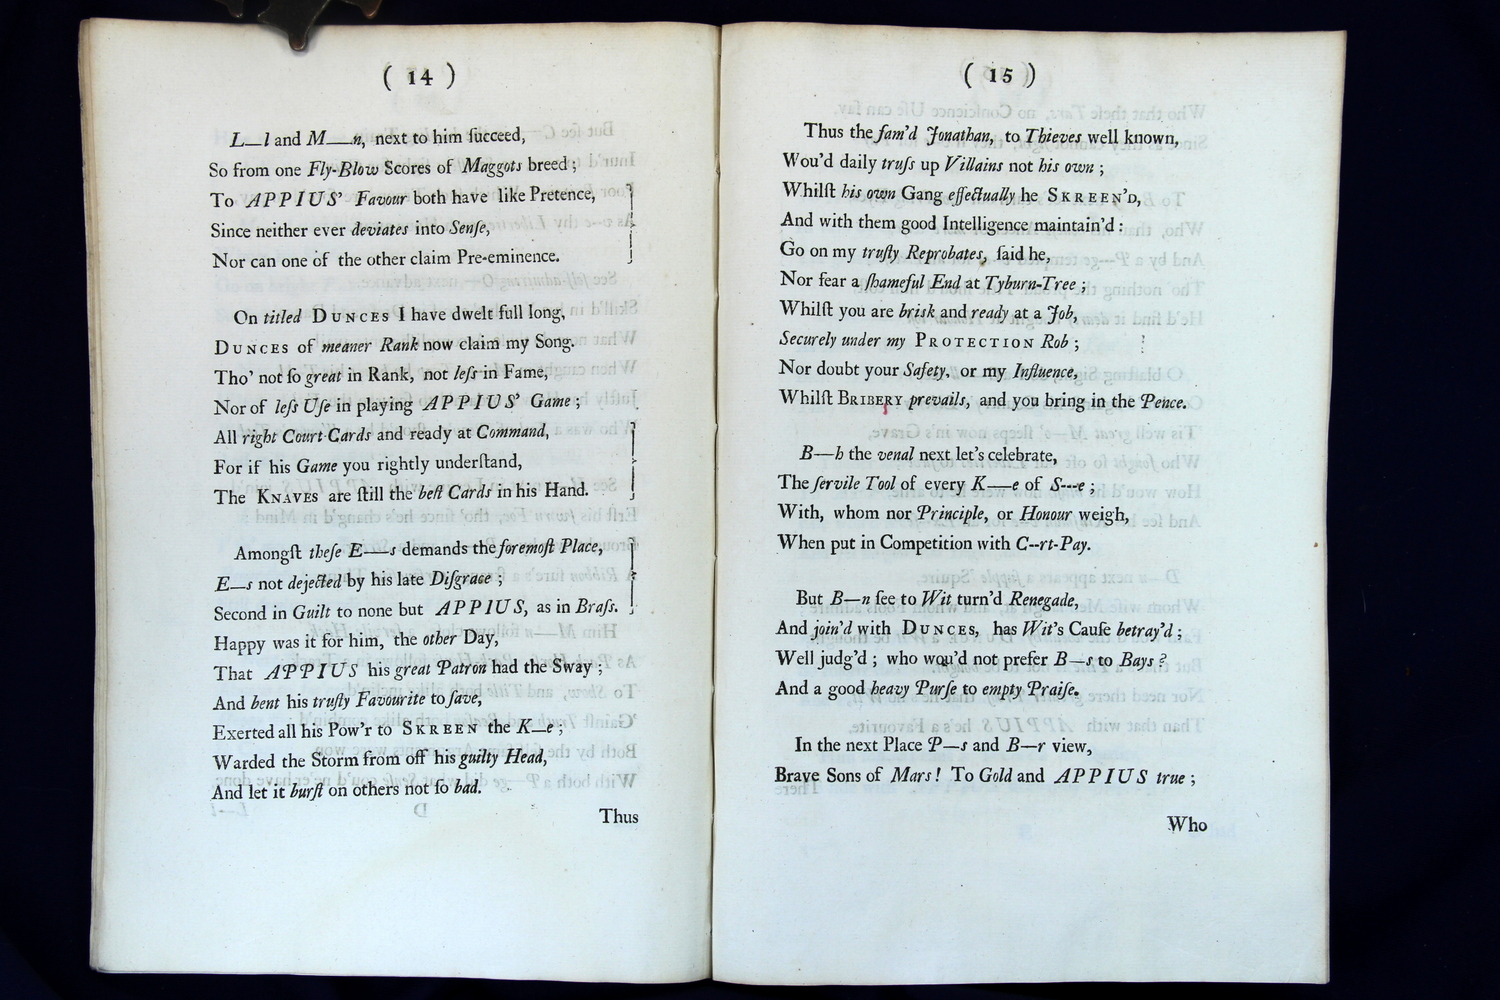 ( 14 )
L—l and M——n, next to him ſucceed,
So from one Fly-Blow Scores of Maggots breed ;
To APPIUS' Favour both have like Pretence,
Since neither ever deviates into Senſe,
Nor can one of the other claim Pre-eminence.
On titled DUNCES I have dwelt full long,
DUNCES of meaner Rank now claim my Song.
Tho' not ſo great in Rank, not leſs in Fame,
Nor of leſs Uſe in playing APPIUS' Game ;
All right Court-Cards and ready at Command,
For if his Game you rightly underſtand,
The KNAVES are ſtill the beſt Cards in his Hand.
Amongſt theſe E——s demands the foremoſt Place,
E—s not dejected by his late Diſgrace ;
Second in Guilt to none but APPIUS, as in Braſs.
Happy was it for him, the other Day,
That APPIUS his great Patron had the Sway ;
And bent his truſty Favourite to ſave,
Exerted all his Pow'r to SKREEN the K—e ;
Warded the Storm from off his guilty Head,
And let it burſt on others not ſo bad.
Thus
( 15 )
Thus the fam'd Jonathan, to Thieves well known,
Wou'd daily truſs up Villains not his own ;
Whilſt his own Gang effectually he SKREEN'D,
And with them good Intelligence maintain'd :
Go on my truſty Reprobates, ſaid he,
Nor fear a ſhameful End at Tyburn-Tree ;
Whilſt you are brisk and ready at a Job,
Securely under my PROTECTION Rob ;
Nor doubt your Safety, or my Influence,
Whilſt BRIBERY prevails, and you bring in the Pence.
B—h the venal next let's celebrate,
The ſervile Tool of every K——e of S---e ;
With, whom nor Principle, or Honour weigh,
When put in Competition with C--rt-Pay.
But B—n ſee to Wit turn'd Renegade,
And join'd with DUNCES, has Wit's Cauſe betray'd ;
Well judg'd ; who wou'd not prefer B—s to Bays ?
And a good heavy Purſe to empty Praiſe.
In the next Place P—s and B—r view,
Brave Sons of Mars! To Gold and APPIUS true ;
Who